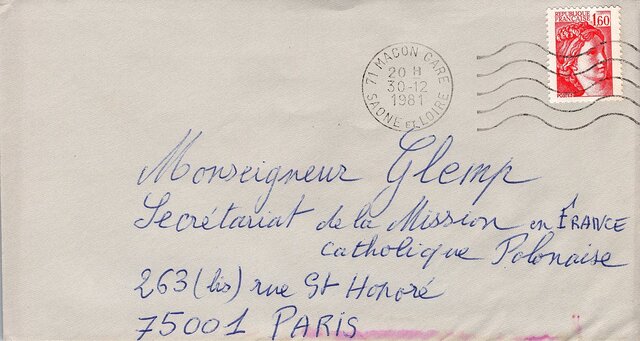 REPUBLIQUE
FRANÇAISE
1,60
POSTES
71 MACON GARE
20 H
30-12
1981
SAONE ET LOIRE
Monseigneur Glemp
Secrétariat de la Mission en FRANCE
catholique Polonaise
263 (bis) rue St Honoré
75001 PARIS